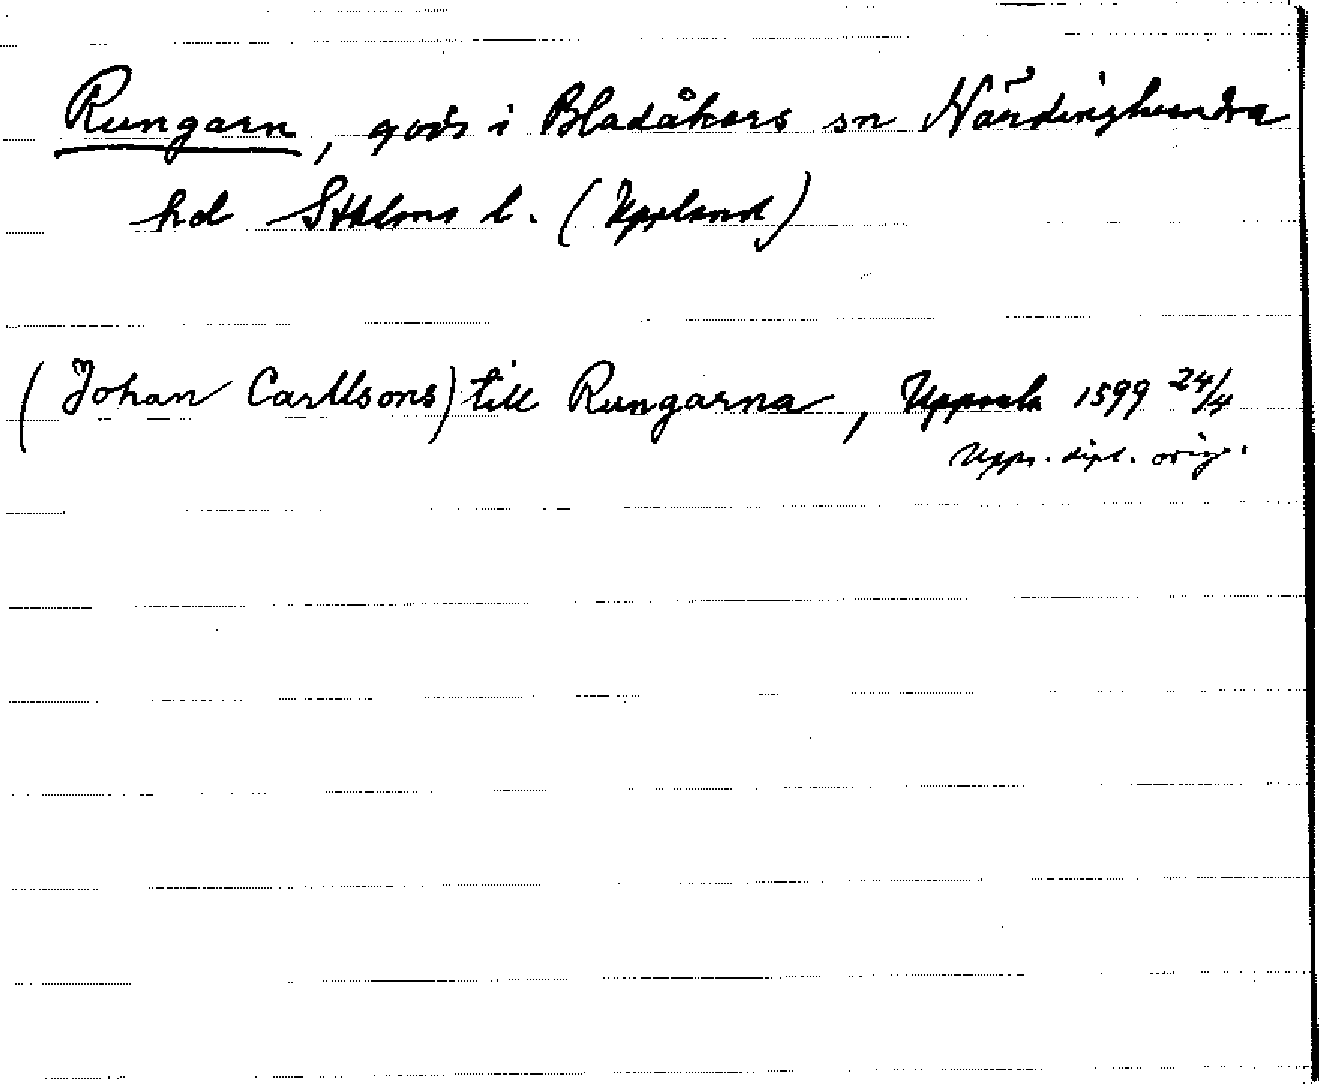 Rungarn, gods i Bladåkers sn Närdinghundra
hd Sthlms l. (Uppland)
(Johan Carllsons) till Rungarna, Uppsala 1599 24/4
Upps. dipl. orig.